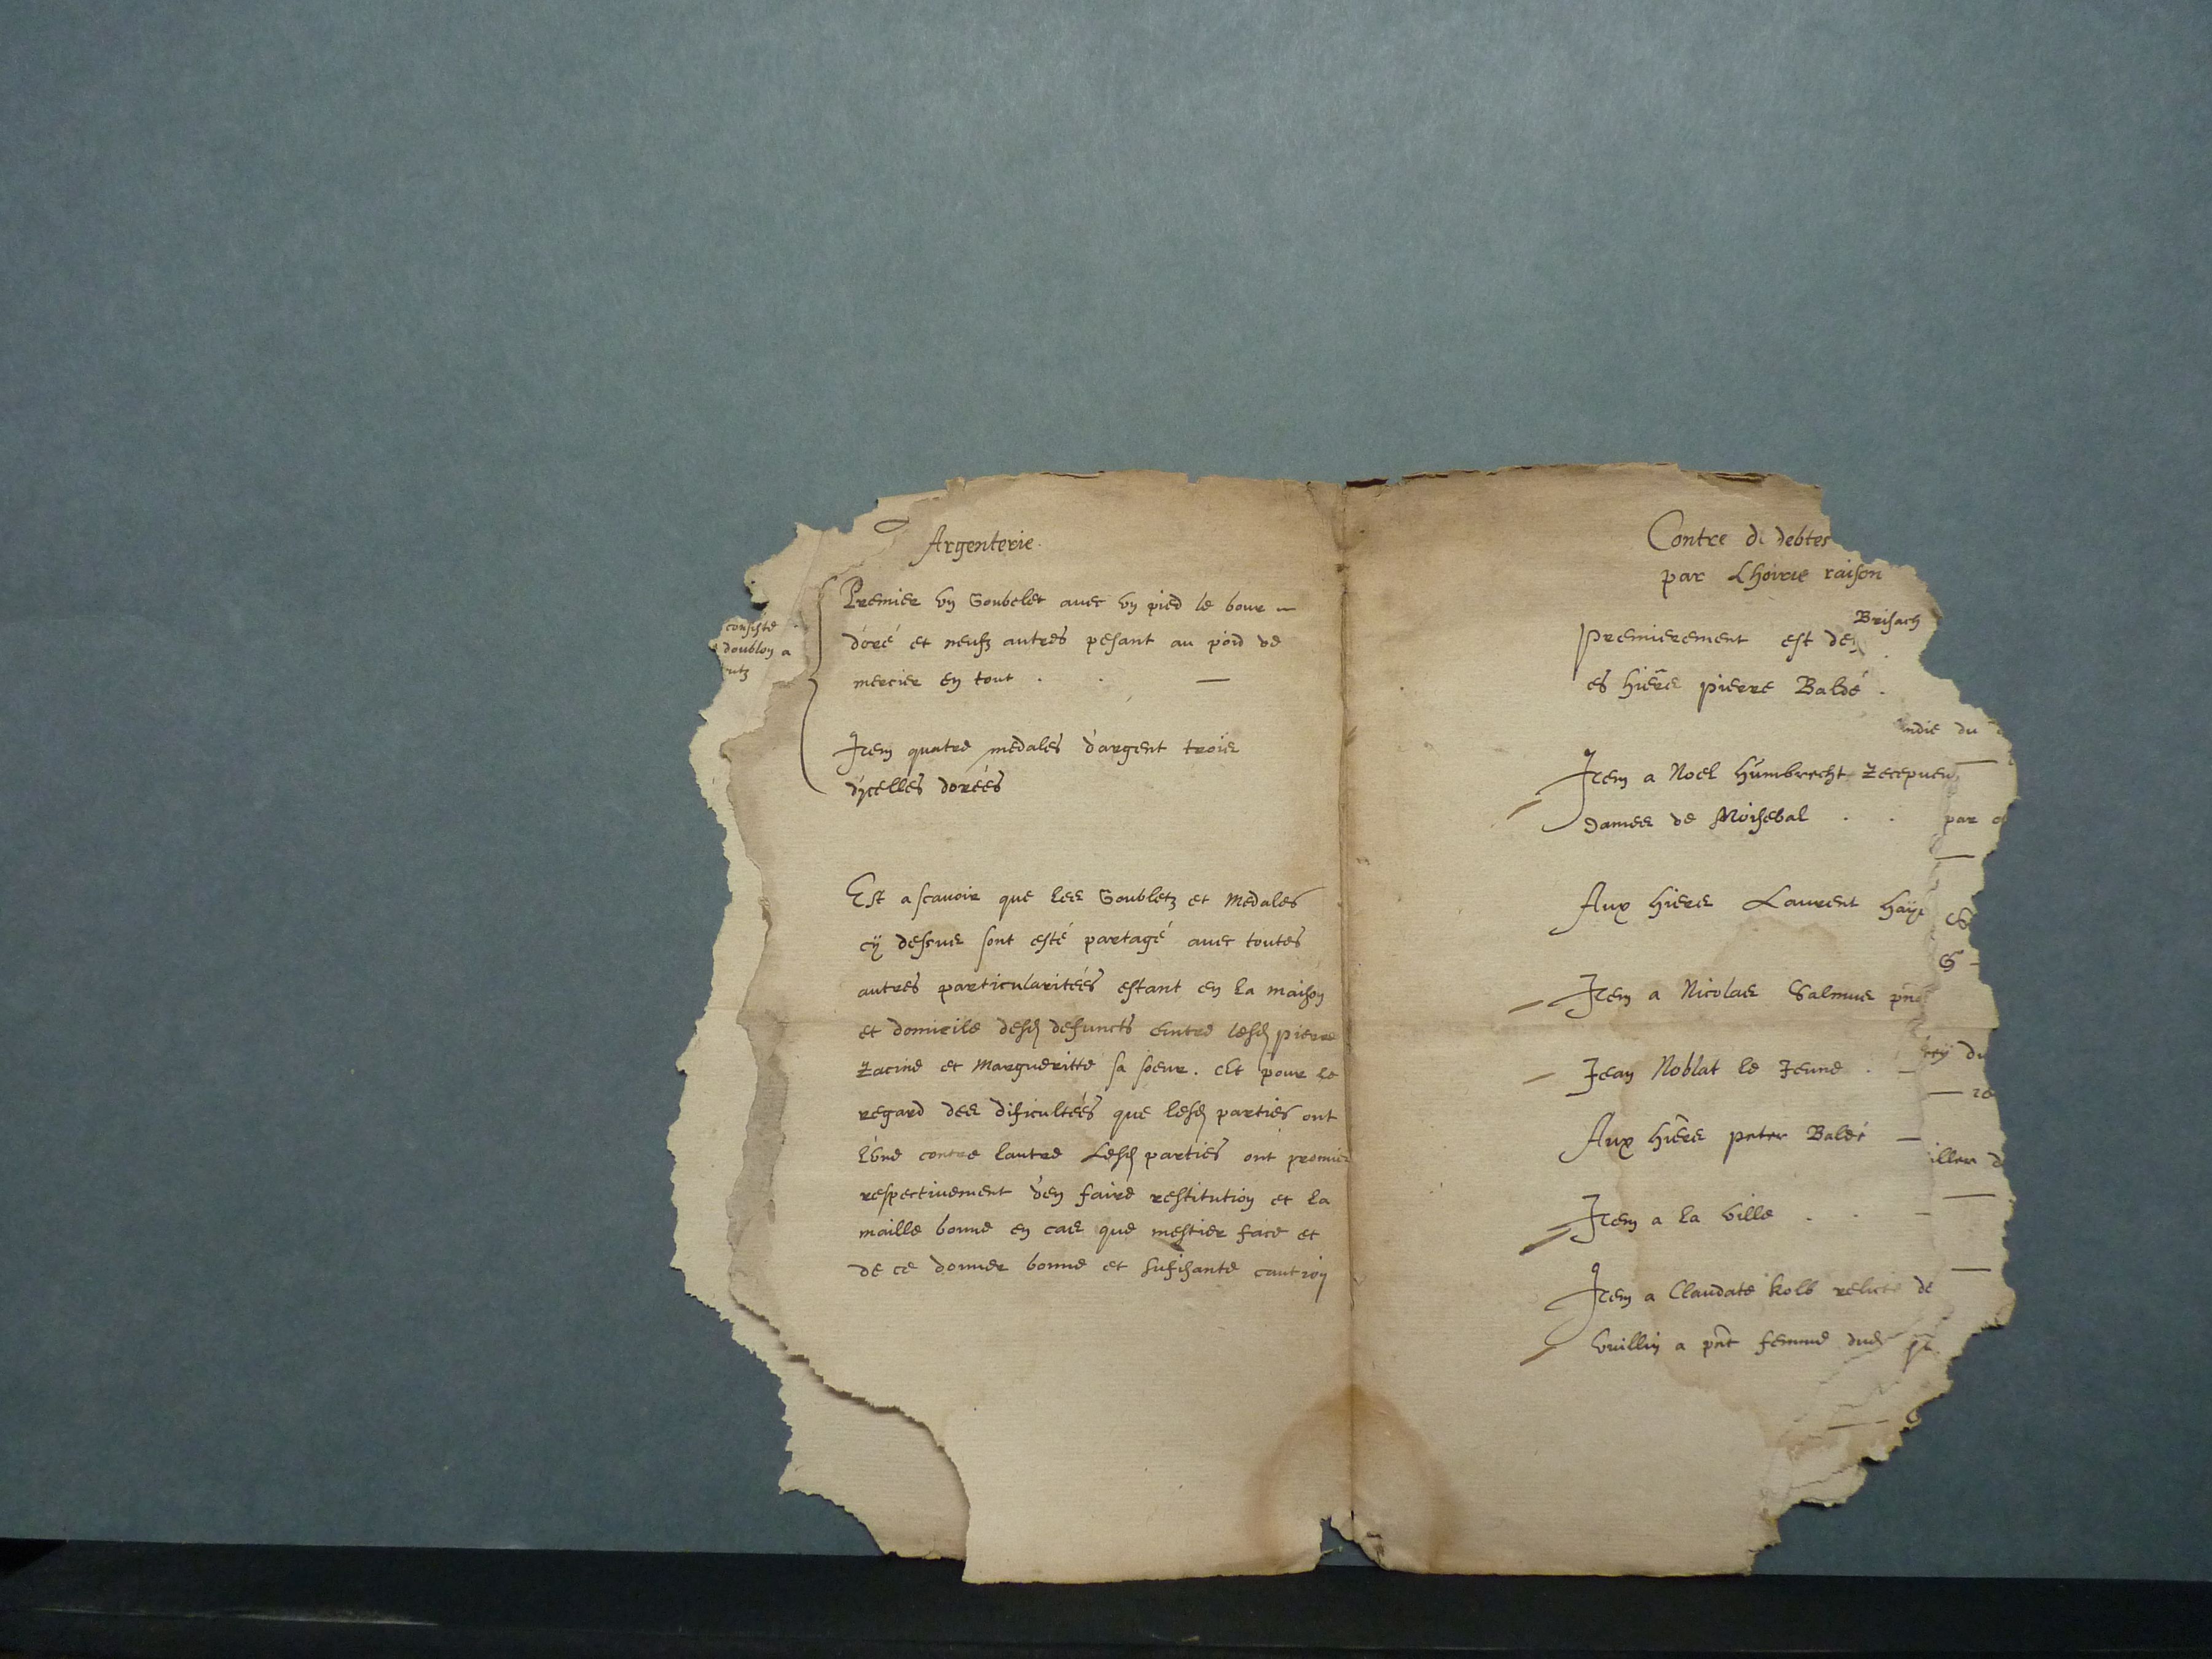 Argenterie
Premier vn Goubelet auec vn pied le bour
doré et neufz autres pesant au poid de
mercier en tout . . —
Item quatre medales d'argent trois
d'ycelles dorées
consiste
doublon a
Est ascauoir que les Goubletz et Medales
cÿ dessus sont esté partagé auec toutes
autres particularitéés estant en la maison
et domicile desd defuncts entre lesd pierre
Racine et Margueritte sa soeur. Et pour le
regard des dificultéés que lesd parties ont
l'vne contre lautre Lesd parties ont promis
respectiuement d'en faire restitution et la
maille bonne en cas que mestier face et
de ce donner bonne et sufisante caution
Contre de debtes
par Lhoirie raison
Brisach
Premierement est de
es hiers pierre Baldé .
ndie du
Item a Noel Humbrecht Recepueu
dames de Moiseval . . par
Aux hiers Laurent Haÿ
Item a Nicolas Salmus pnt
Jean Noblat le Jeune . —
du
Aux hiers peter Baldé —
iller d
Item a la ville . . —
Item a Claudate Kolb relicte de
Vuillin a pnt femme dud